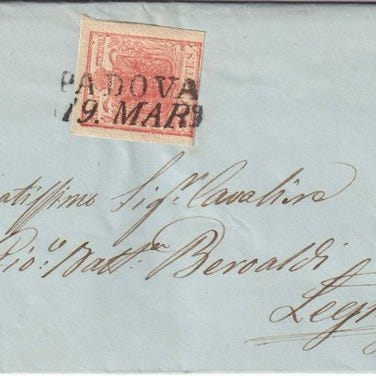 PADOVA
19. MARZ
Sig.r Cavaliere
Gio. Batt.a Beroaldi
Legn